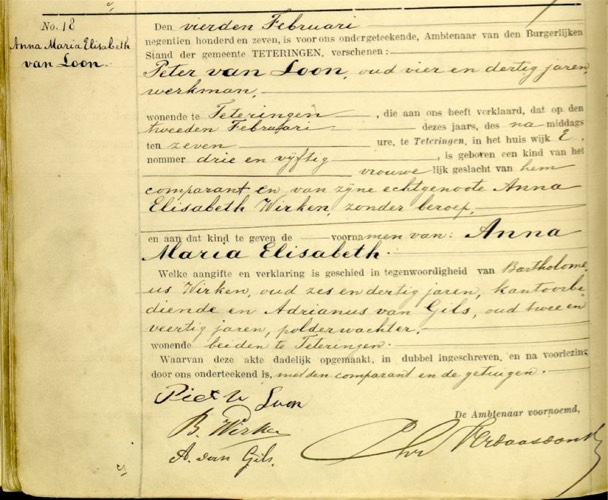 No. 18
Anna Maria Elisabeth
van Loon.
Den vierden Februari
negentien honderd en zeven, is voor ons ondergeteekende, Ambtenaar van den Burgerlijken
Stand der gemeente TETERINGEN, verschenen:
Peter van Loon, oud vier en dertig jaren,
werkman,
wonende te Teteringen, die aan ons heeft verklaard, dat op den
tweeden Februari dezes jaars, des na middags
ten zeven ure, te Teteringen, in het huis wijk E.
nommer drie en vijftig, is geboren een kind van het
vrouwe lijk geslacht van hem
comparant en van zijne echtgenoote Anna
Elisabeth Wirken, zonder beroep,
en aan dat kind te geven de voornamen van: Anna
Maria Elisabeth.
Welke aangifte en verklaring is geschied in tegenwoordigheid van Bartholome-
us Wirken, oud zes en dertig jaren, kantoorbe-
diende en Adrianus van Gils, oud twee en
veertig jaren, polderwachter,
wonende beiden te Teteringen.
Waarvan deze akte dadelijk opgemaakt, in dubbel ingeschreven, en na voorlezing
door ons onderteekend is, met den comparant en de getuigen.
Loon
B. Wirken
A. van Gils.
De Ambtenaar voornoemd,